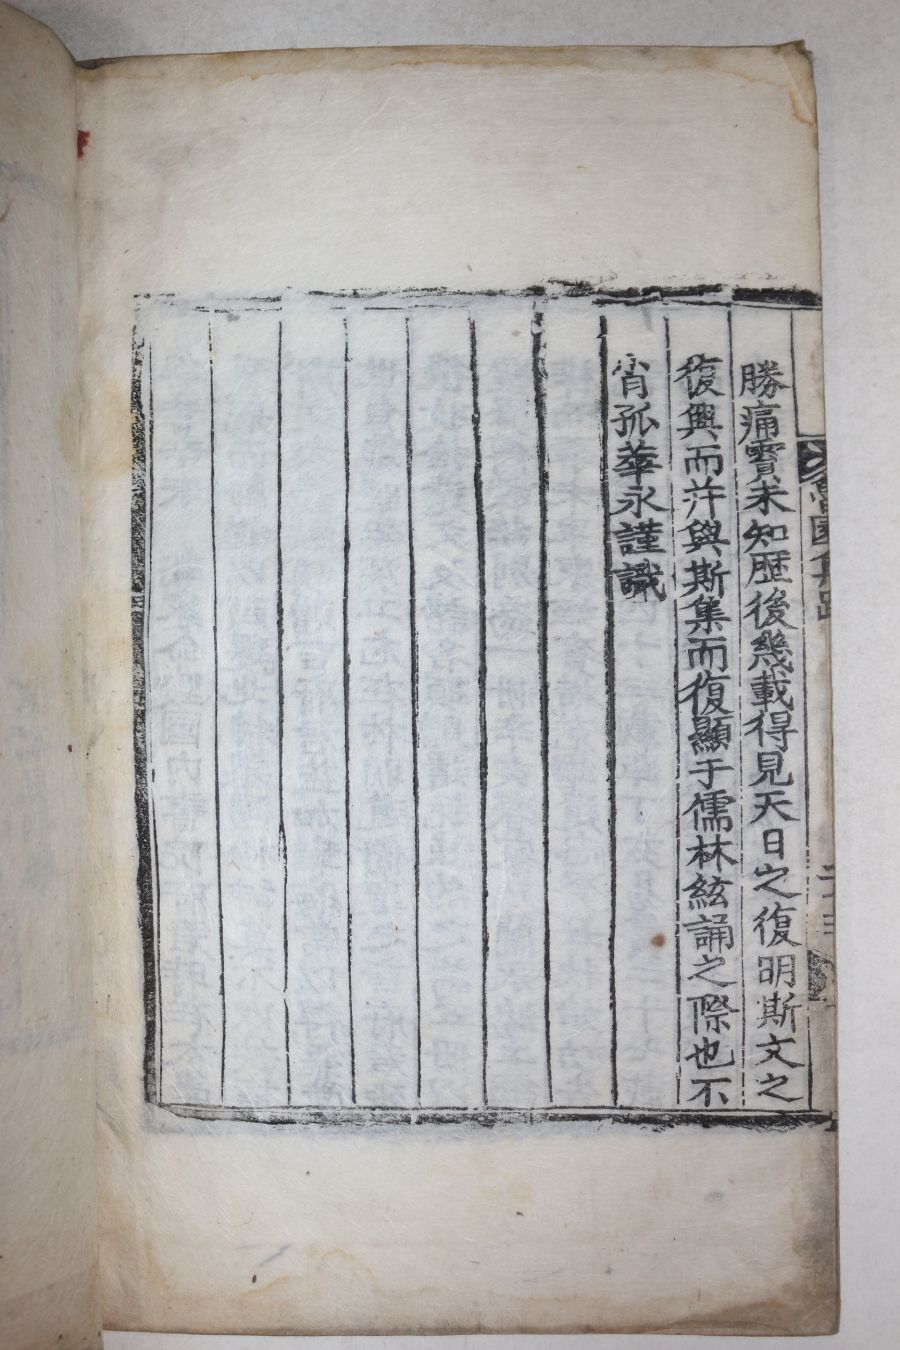 勝痛實未知歷後幾載得見天日之復明斯文之
復興而幷與斯集而復顯于儒林絃誦之際也不
肖孤華永謹識